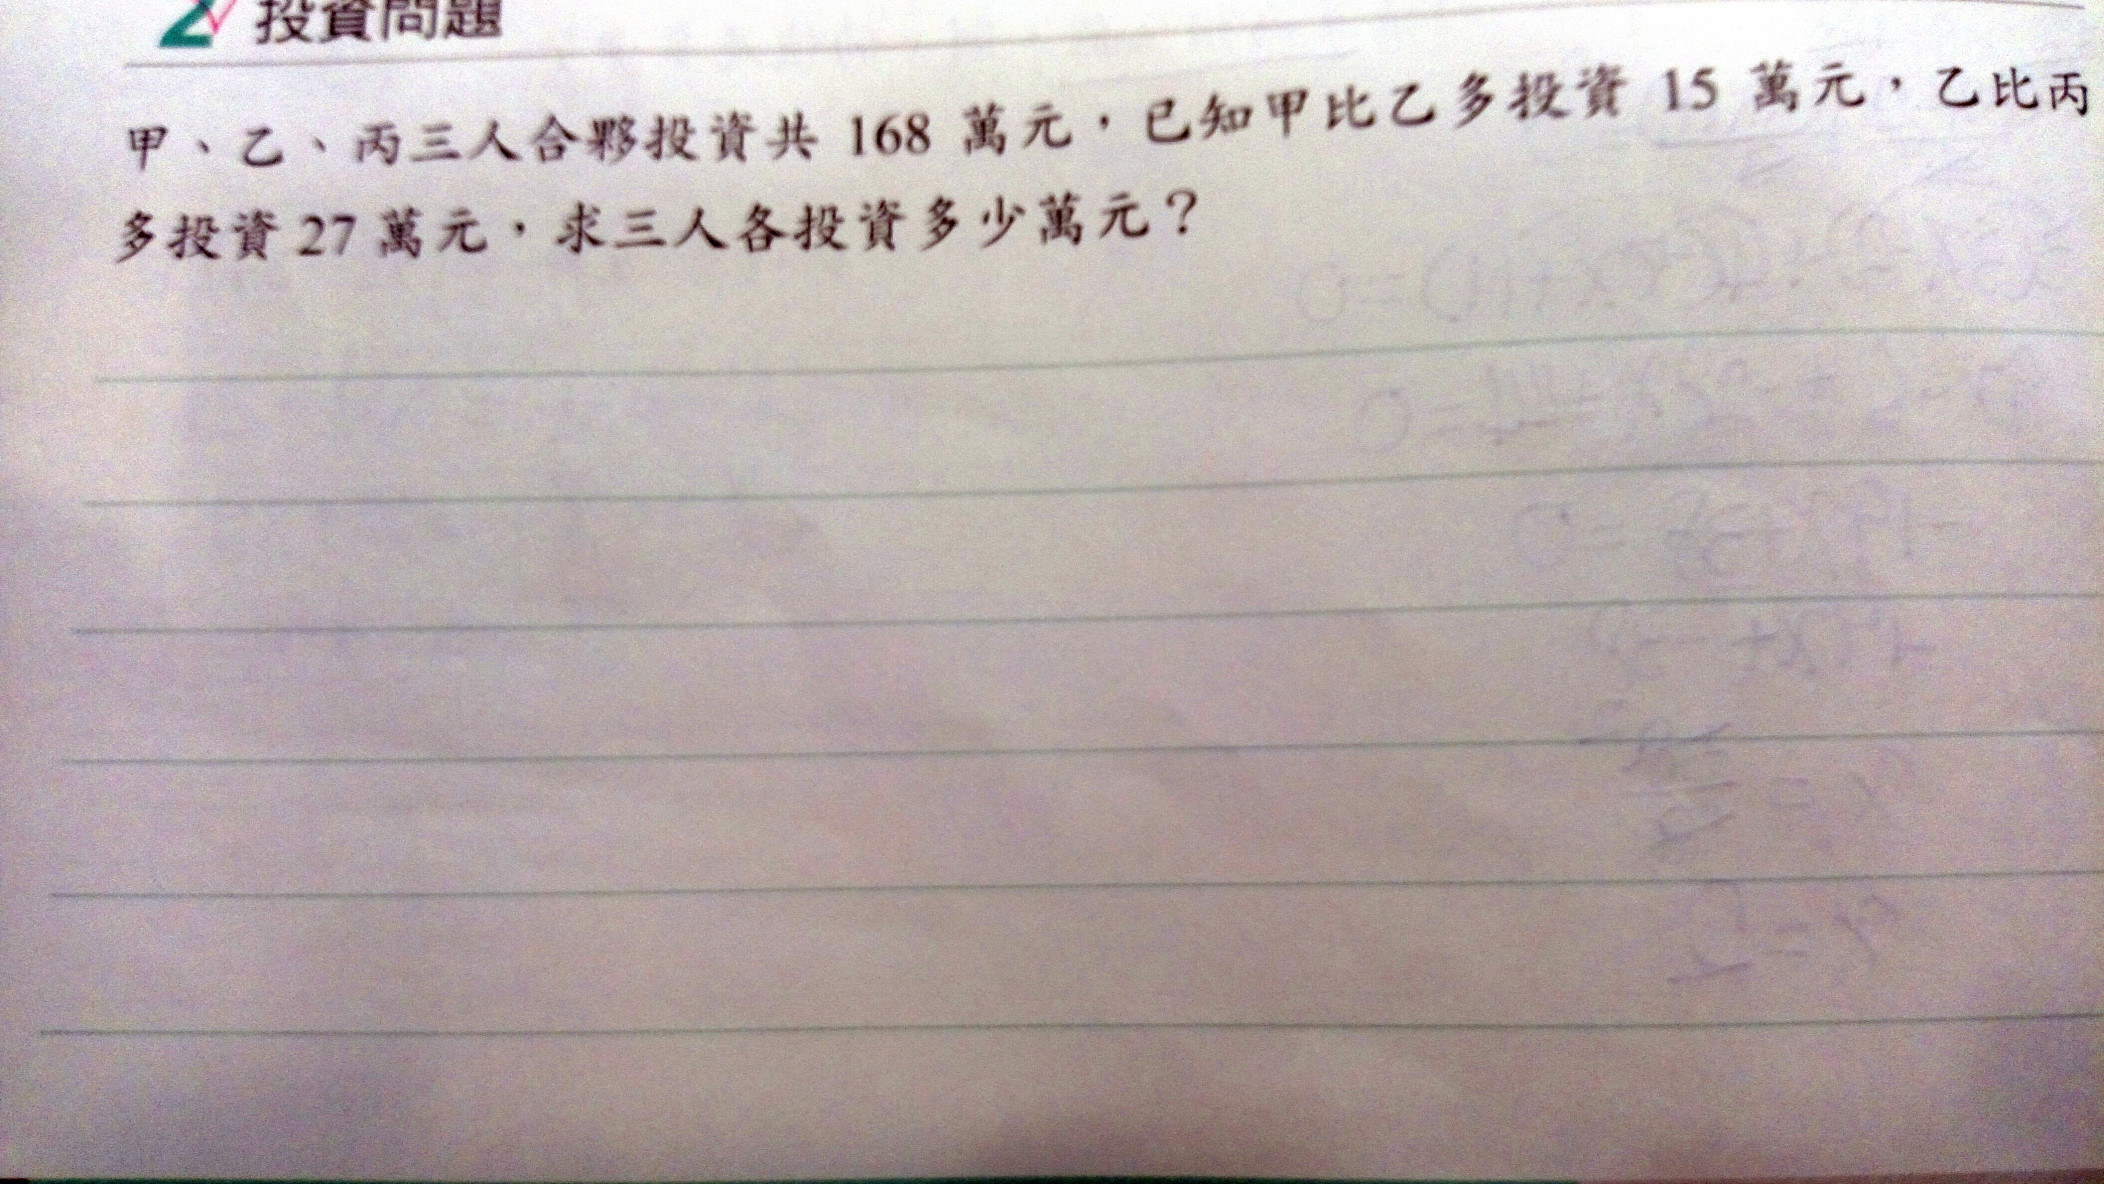 2 投資問題
甲、乙、丙三人合夥投資共 168 萬元，已知甲比乙多投資 15 萬元，乙比丙
多投資 27 萬元，求三人各投資多少萬元？